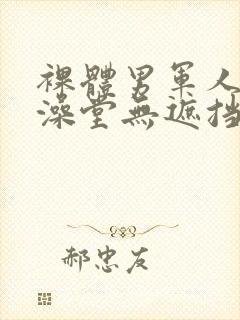 裸體男軍人
澡堂無遮挡
郝忠友